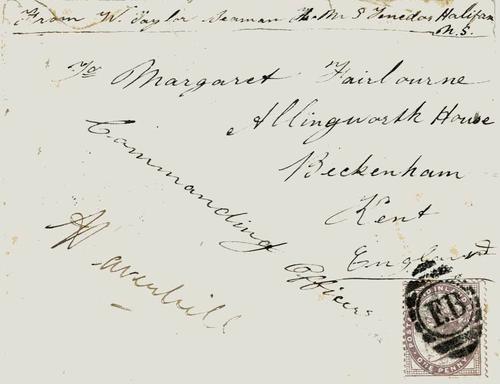 From W. Taylor Seaman H.M.S Tenedos Halifax
N.S.
Margaret Fairbourne
Allingworth House
Beckenham
Kent
England
Commanding Officer
E.B
POSTAGE
ONE PENNY